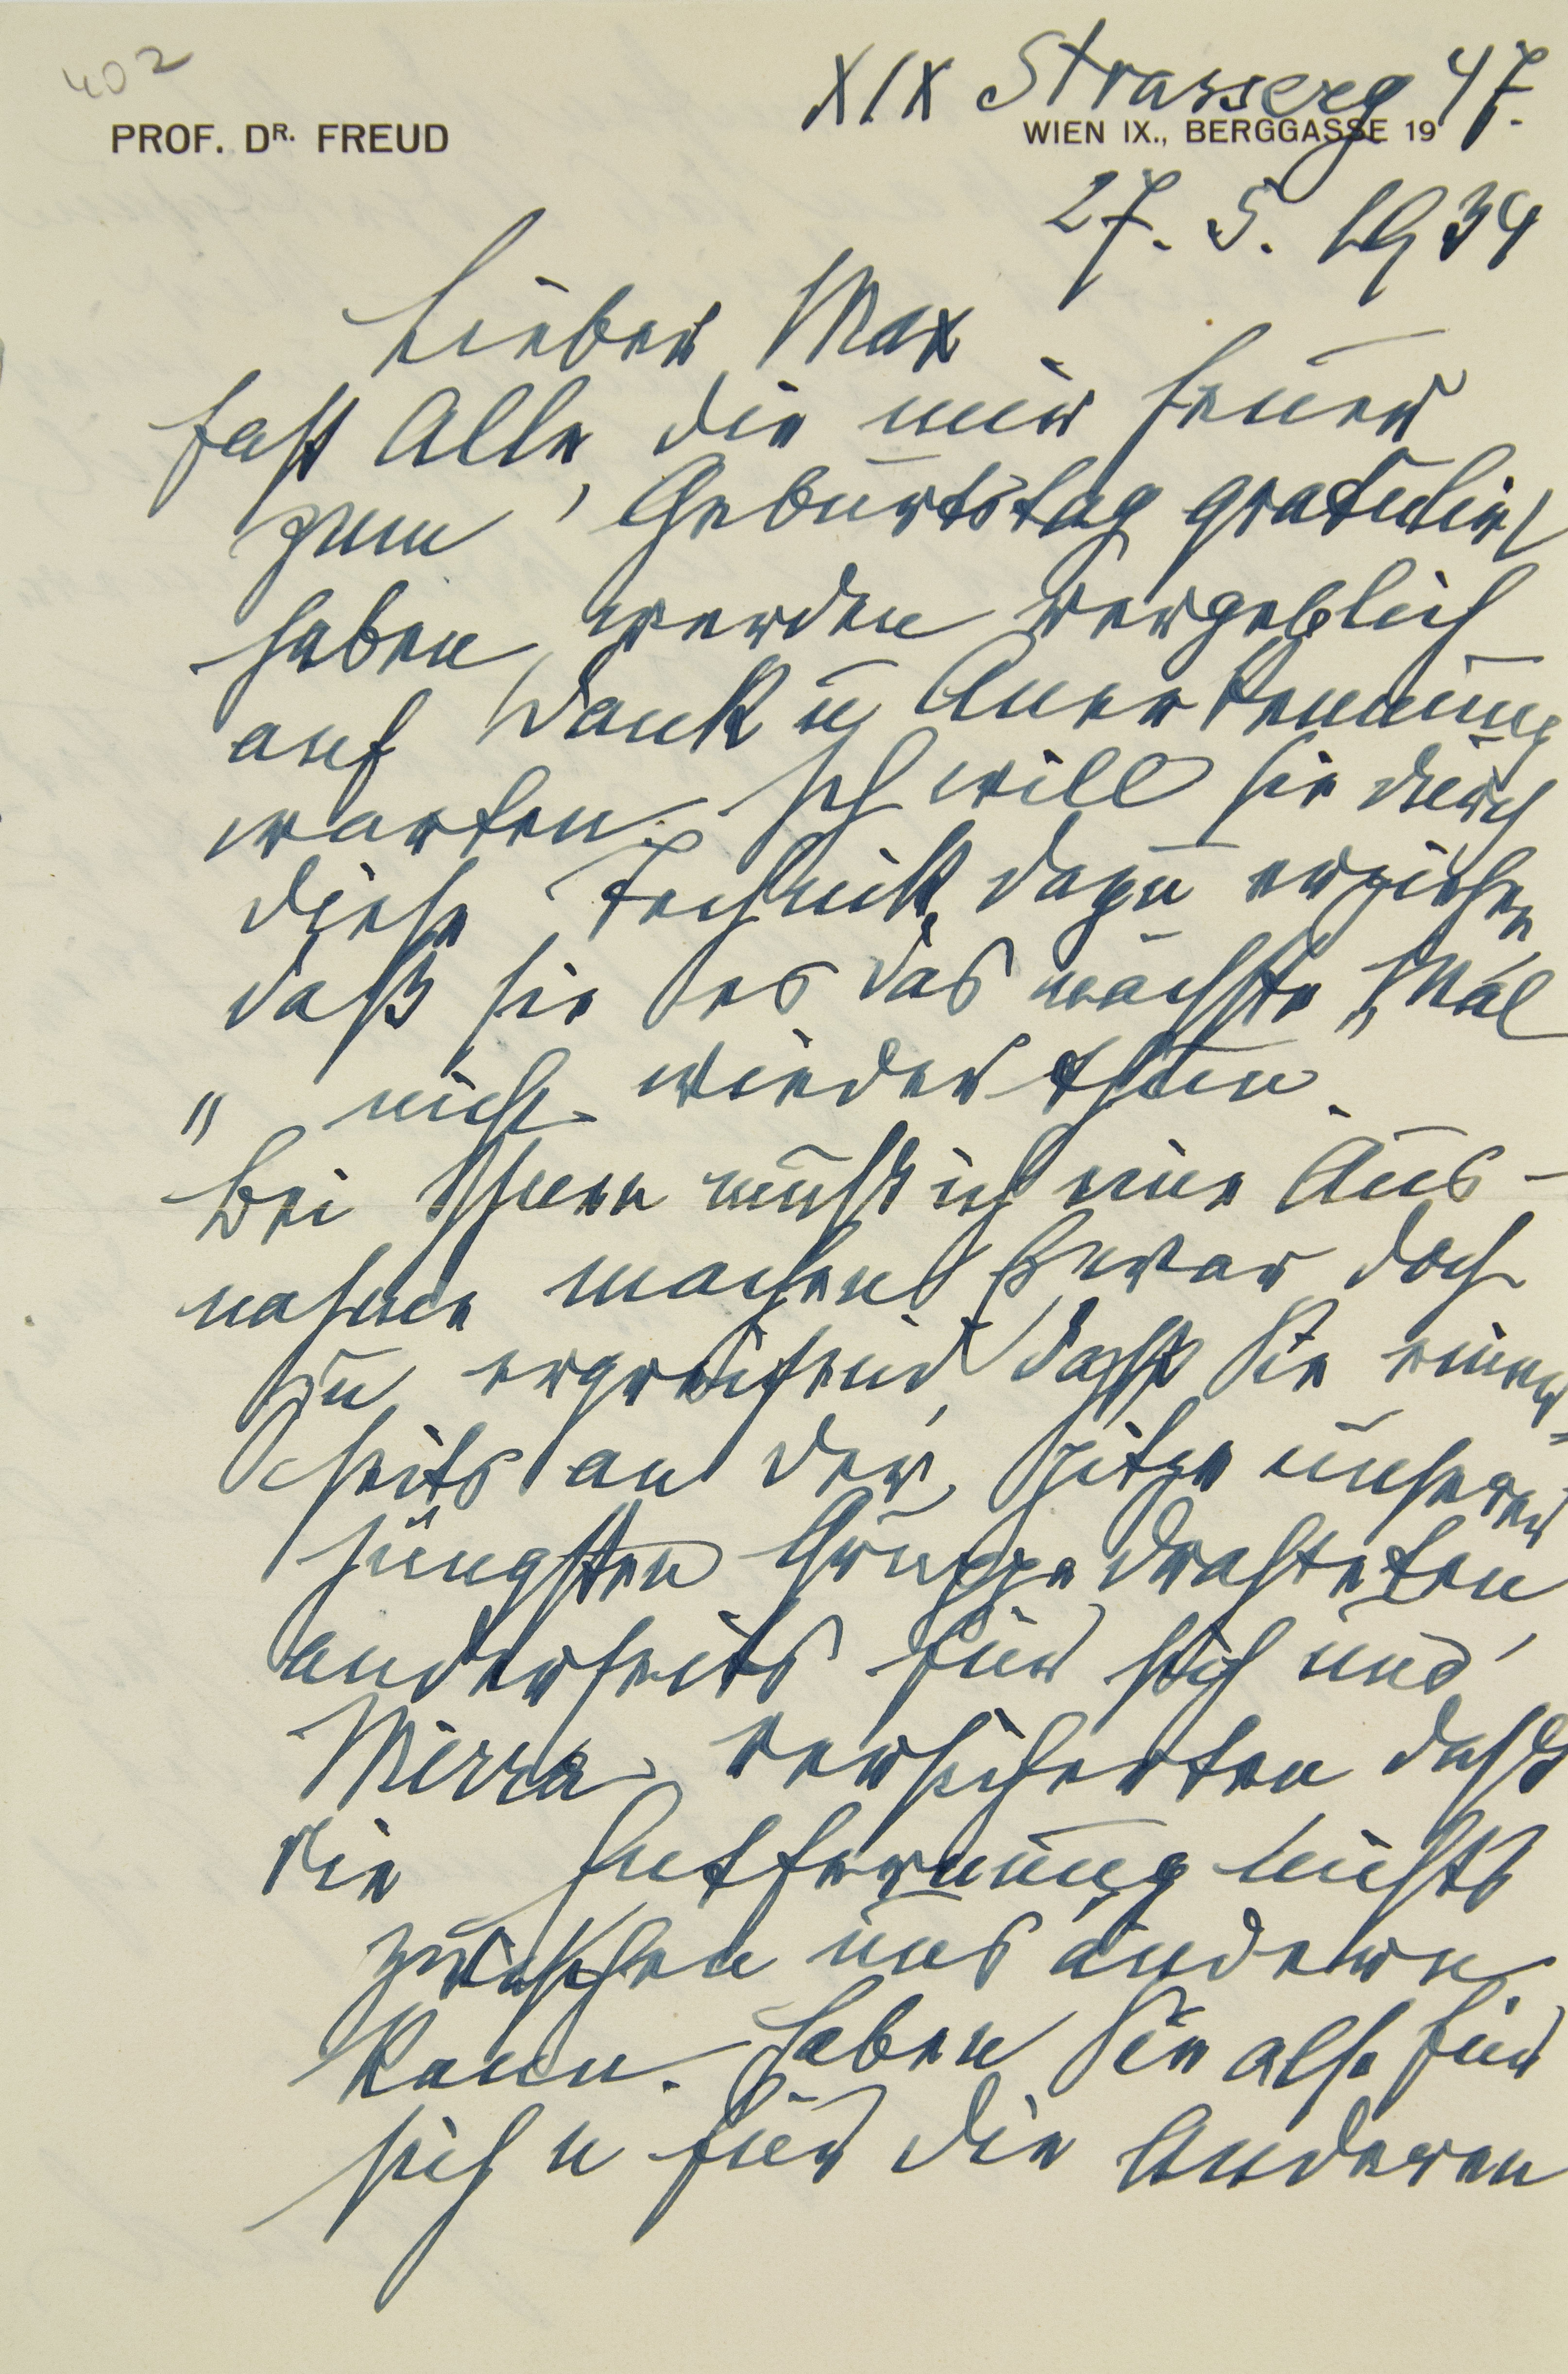 402
XIX Strasserg 47.
PROF. DR. FREUD
WIEN IX., BERGGASSE 19
27. 5. 1934
Lieber Max
Fast Alle, die mir heuer
zum Geburtstag gratulirt
haben, werden vergeblich
auf Dank u Anerkennung
warten. Ich will sie durch
diese Technik dazu erziehen,
daß sie es das nächste Mal
nicht wieder thun.
Bei Ihnen muß ich eine Aus-
nahme machen. Es war doch
zu ergreifend, daß Sie einer-
seits an der Spitze unserer
jüngsten Gruppe drahteten
anderseits für sich und
Mirra versicherten daß
die Entfernung nichts
zwischen uns ändern
kann. Haben Sie also für
sich u für die Anderen